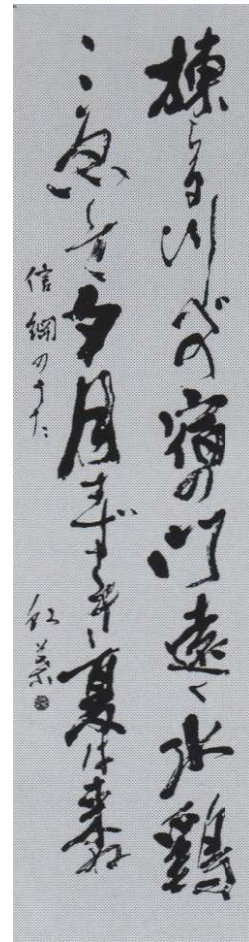 楝ちる川べの宿の門遠く水鶏
こゑして夕月すずしき夏は来ぬ
信綱のうた